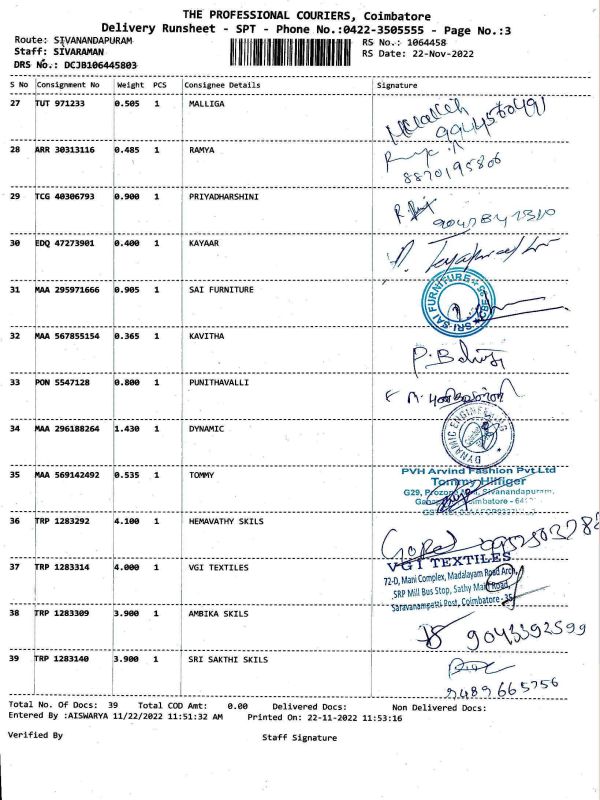 THE PROFESSIONAL COURIERS, Coimbatore
Delivery Runsheet - SPT - Phone No.:0422-3505555 - Page No.:3
Route: SIVANANDAPURAM
RS No.: 1064458
Staff: SIVARAMAN
RS Date: 22-Nov-2022
DRS No.: DCJB106445803
S No Consignment No Weight PCS Consignee Details Signature
27 TUT 971233 0.505 1 MALLIGA
28 ARR 30313116 0.485 1 RAMYA
8870195806
29 TCG 40306793 0.900 1 PRIYADHARSHINI
30 EDQ 47273901 0.400 1 KAYAAR
31 MAA 295971666 0.905 1 SAI FURNITURE
SRI SAI FURNITURE
32 MAA 567855154 0.365 1 KAVITHA
33 PON 5547128 0.800 1 PUNITHAVALLI
34 MAA 296188264 1.430 1 DYNAMIC
DYNAMIC ENGINEERING
35 MAA 569142492 0.535 1 TOMMY
PVH Arvind Fashion Pvt Ltd
Tommy Hilfiger
G29, Sivanandapuram,
Coimbatore
36 TRP 1283292 4.100 1 HEMAVATHY SKILS
37 TRP 1283314 4.000 1 VGI TEXTILES
VGI TEXTILES
72-D, Mani Complex, Madalayam Road Arch,
SRP Mill Bus Stop, Sathy Main Road,
Saravanampatti Post, Coimbatore - 35
38 TRP 1283309 3.900 1 AMBIKA SKILS
9043392599
39 TRP 1283140 3.900 1 SRI SAKTHI SKILS
9489665756
Total No. Of Docs: 39 Total COD Amt: 0.00 Delivered Docs: Non Delivered Docs:
Entered By :AISWARYA 11/22/2022 11:51:32 AM Printed On: 22-11-2022 11:53:16
Verified By Staff Signature